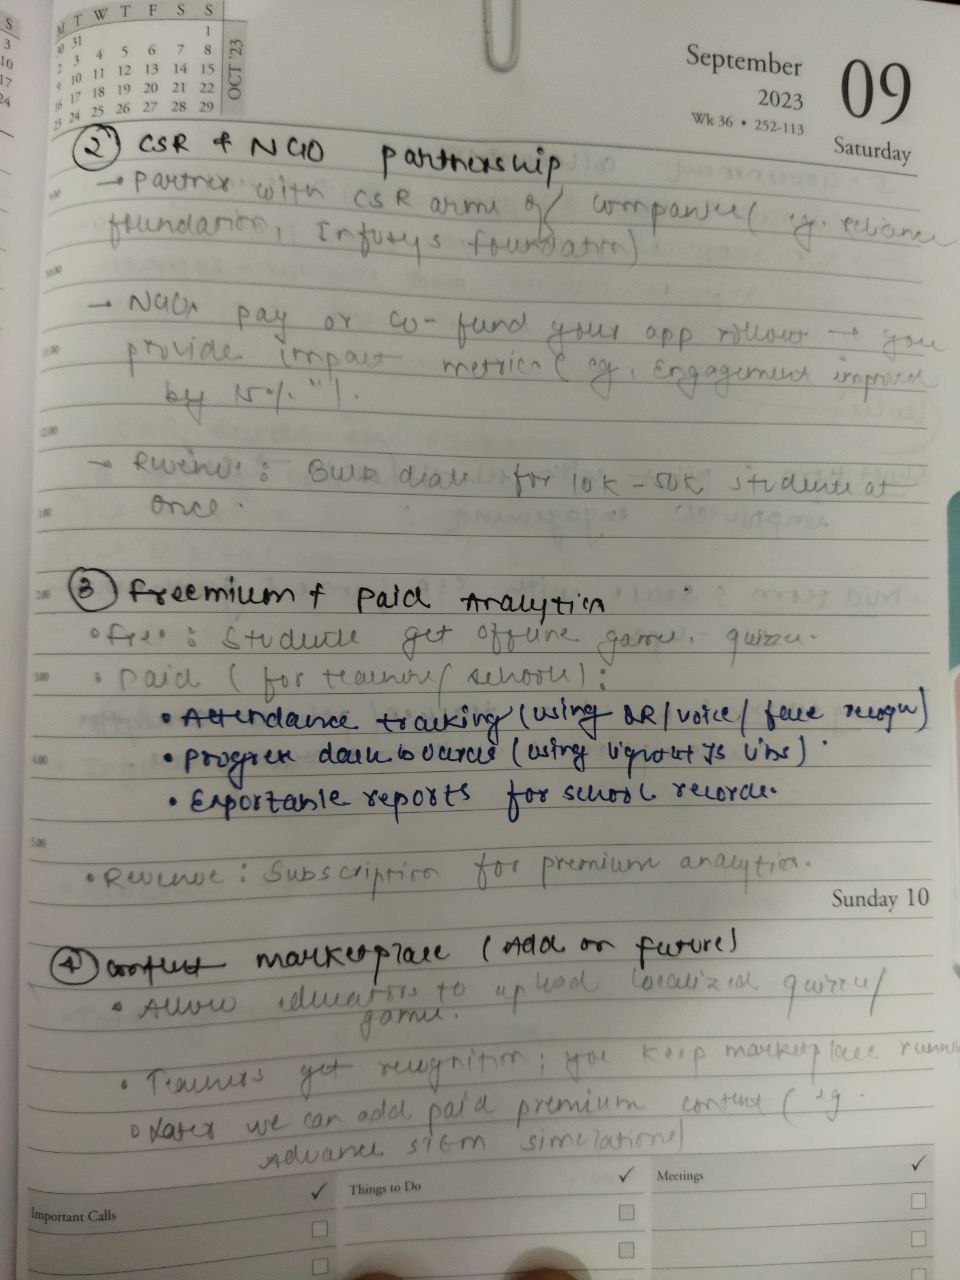 S
3
10
17
24
M T W T F S S
30 31 1
2 3 4 5 6 7 8
9 10 11 12 13 14 15
16 17 18 19 20 21 22
23 24 25 26 27 28 29
OCT '23
September
2023
Wk 36 • 252-113
09
Saturday
② CSR & NGO partnership
→ Partner with CSR arms of companies (eg. reliance
foundation, Infosys foundation)
10.00
→ NGOs pay or co-fund your app rollout → you
11.00
provide impact metrics (eg, Engagement improved
by 15%").
12.00
→ Revenue: Bulk deals for 10K-50K students at
1.00
once.
2.00
③ freemium & paid Analytics
• Free: Students get offline games, quizzes.
3.00
• Paid (for teachers/schools):
• Attendance tracking (using QR/voice/face recogn)
4.00
• Progress dashboards (using lightweight JS libs)
• Exportable reports for school records.
5.00
• Revenue: Subscription for premium analytics.
Sunday 10
④ content marketplace (Add on future)
• Allow educators to upload localized quizzes/
games.
• Teachers get recognition; you keep marketplace
• Later we can add paid premium content (eg.
Advance STEM simulations)
Important Calls ✓
Things to Do ✓
Meetings ✓